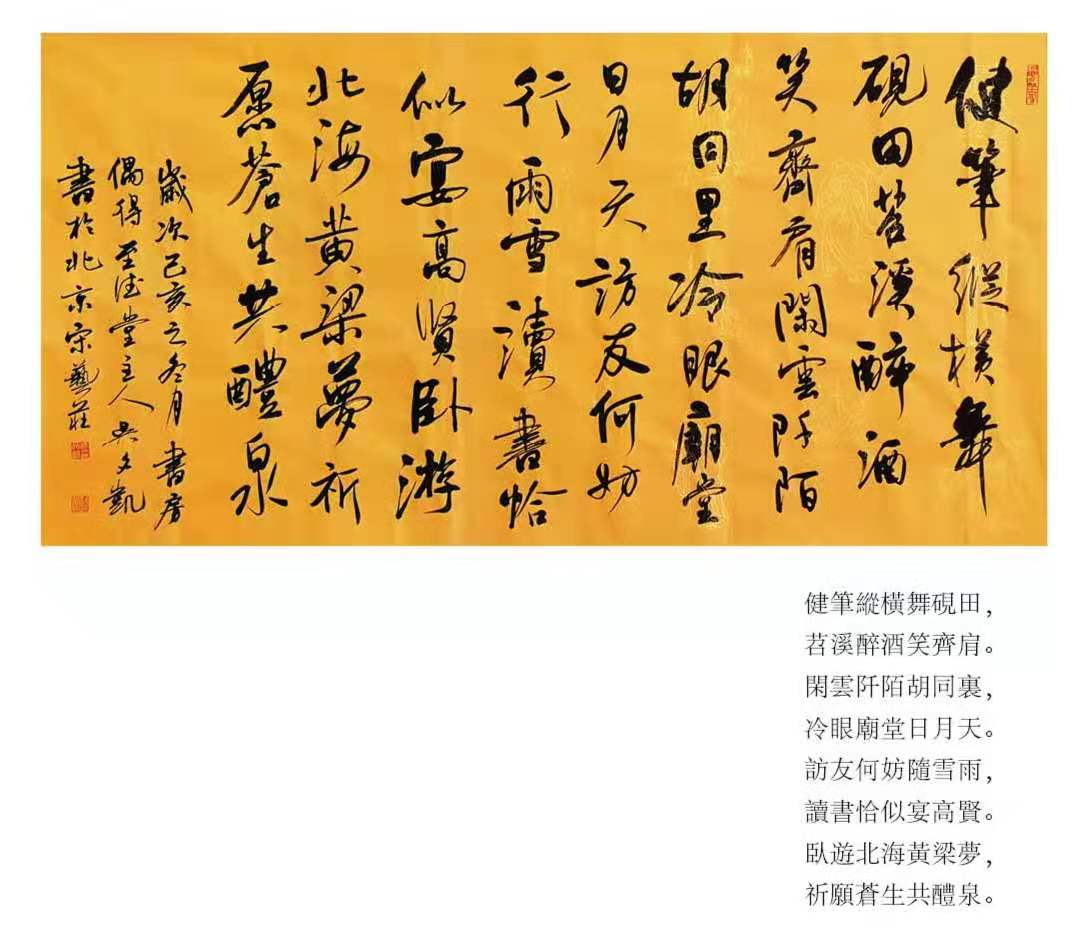 健筆縱橫舞
硯田苕溪醉酒
笑齊肩閑雲阡陌
胡同里冷眼廟堂
日月天訪友何妨
行雨雪瀆書恰
似宴高賢臥游
北海黃梁夢祈
愿蒼生共醴泉
歲次己亥之冬月書房
偶得至德堂主人吳文凱
書於北京宋藝莊
健筆縱橫舞硯田，
苕溪醉酒笑齊肩。
閑雲阡陌胡同裏，
冷眼廟堂日月天。
訪友何妨隨雪雨，
讀書恰似宴高賢。
臥遊北海黃梁夢，
祈願蒼生共醴泉。